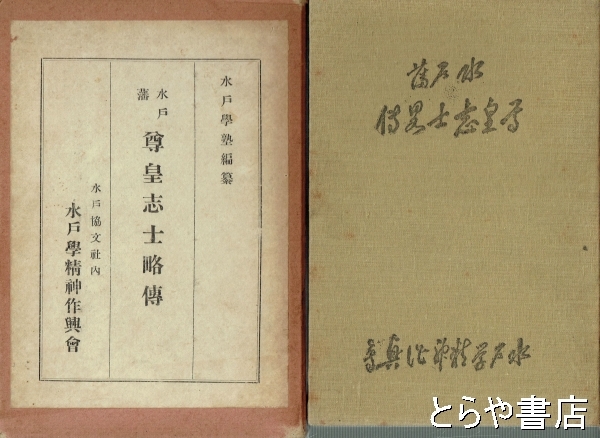 水戸學塾編纂
水戸藩 尊皇志士略傳
水戸協文社内
水戸學精神作興會
水戸藩
尊皇志士略傳
水戸学精神作興會
とらや書店